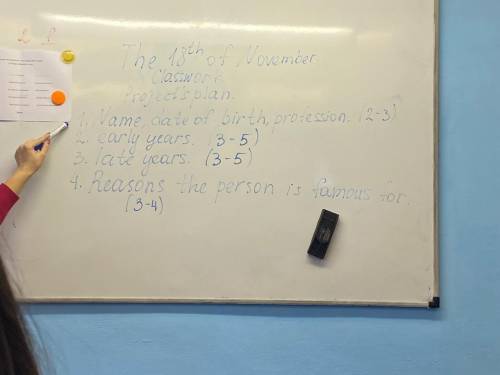 The 18th of November
Classwork
Project's plan.
1. Name, date of birth, profession. (2-3)
2. early years. (3-5)
3. late years. (3-5)
4. Reasons the person is famous for.
(3-4)